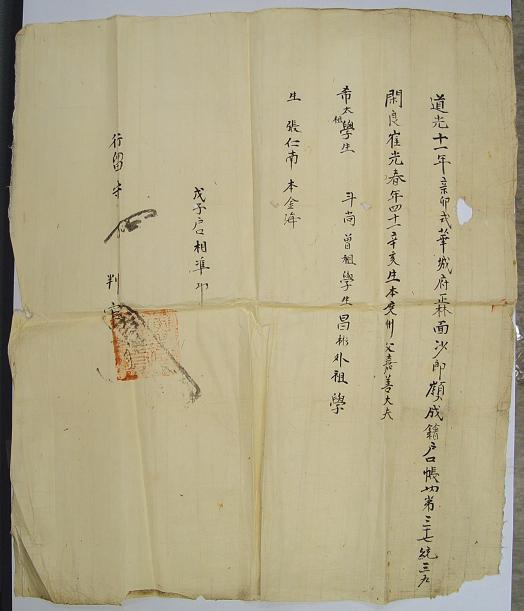 道光十一年辛卯式華城府霖面沙郎成籍戶口帳內第三十七統三戶
閑良崔光春年四十一辛亥生本慶州父嘉善大夫
希太祖學生 斗尚曾祖學生昌彬外祖學
生 張仁南 本金海
戊子戶口相準印
行留守 判官